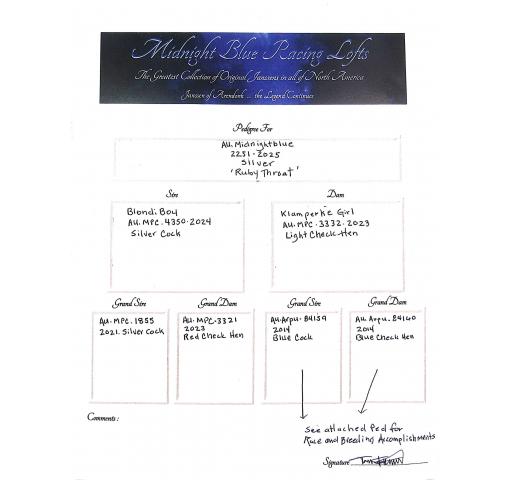 Midnight Blue Racing Lofts
The Greatest Collection of Original Janssens in all of North America
Janssen of Arendonk ... the Legend Continues
Pedigree For
AU. Midnightblue
2251-2025
Silver
'Ruby Throat'
Sire
Dam
Blondi Boy
AU. MPC. 4350-2024
Silver Cock
Klamperke Girl
AU. MPC. 3332-2023
Light Check-Hen
Grand Sire
Grand Dam
Grand Sire
Grand Dam
AU-MPC-1855
2021. Silver Cock
AU. MPC-3321
2023
Red Check Hen
AU.Arpu-84159
2014
Blue Cock
AU. Arpu. 84140
2014
Blue Check Hen
Comments :
See attached Ped for
Race and Breeding Accomplishments
Signature